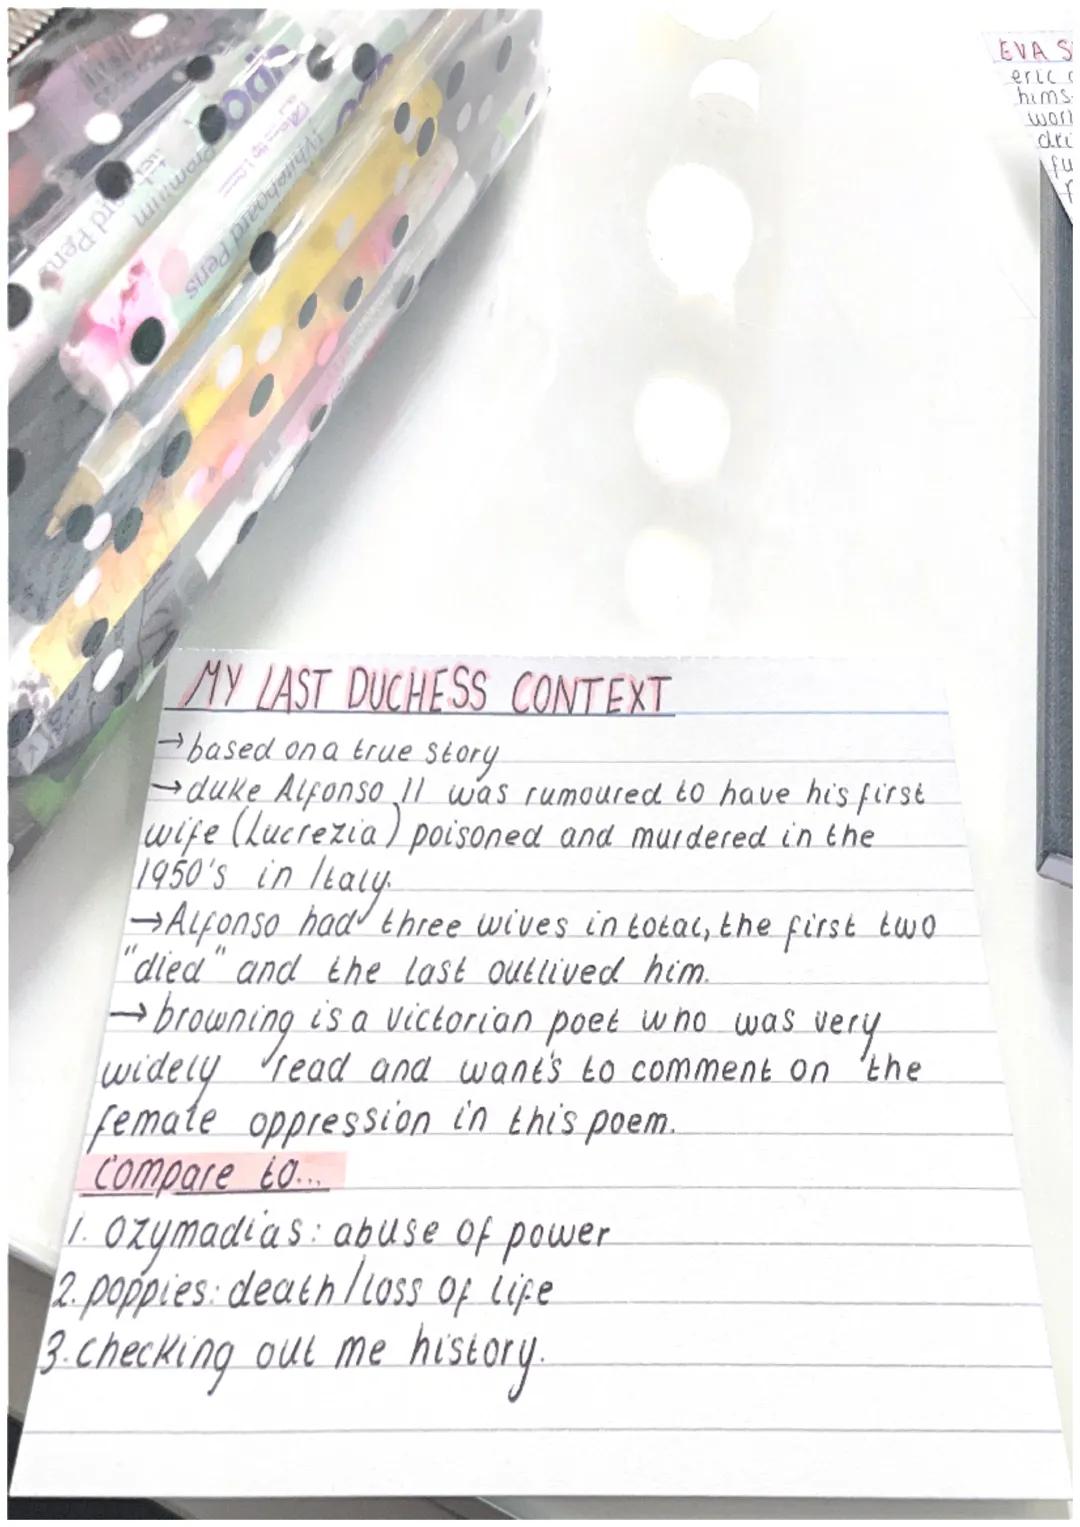 EVA S
eric
hims
wor
dri
fu
Whiteboard Pens
Premium
MY LAST DUCHESS CONTEXT
→ based on a true story
→ duke Alfonso II was rumoured to have his first
wife (Lucrezia) poisoned and murdered in the
1950's in Italy.
→ Alfonso had three wives in total, the first two
"died" and the last outlived him.
→ browning is a victorian poet who was very
widely read and want's to comment on the
female oppression in this poem.
Compare to...
1. Ozymadias: abuse of power
2. poppies: death/loss of life
3. checking out me history.